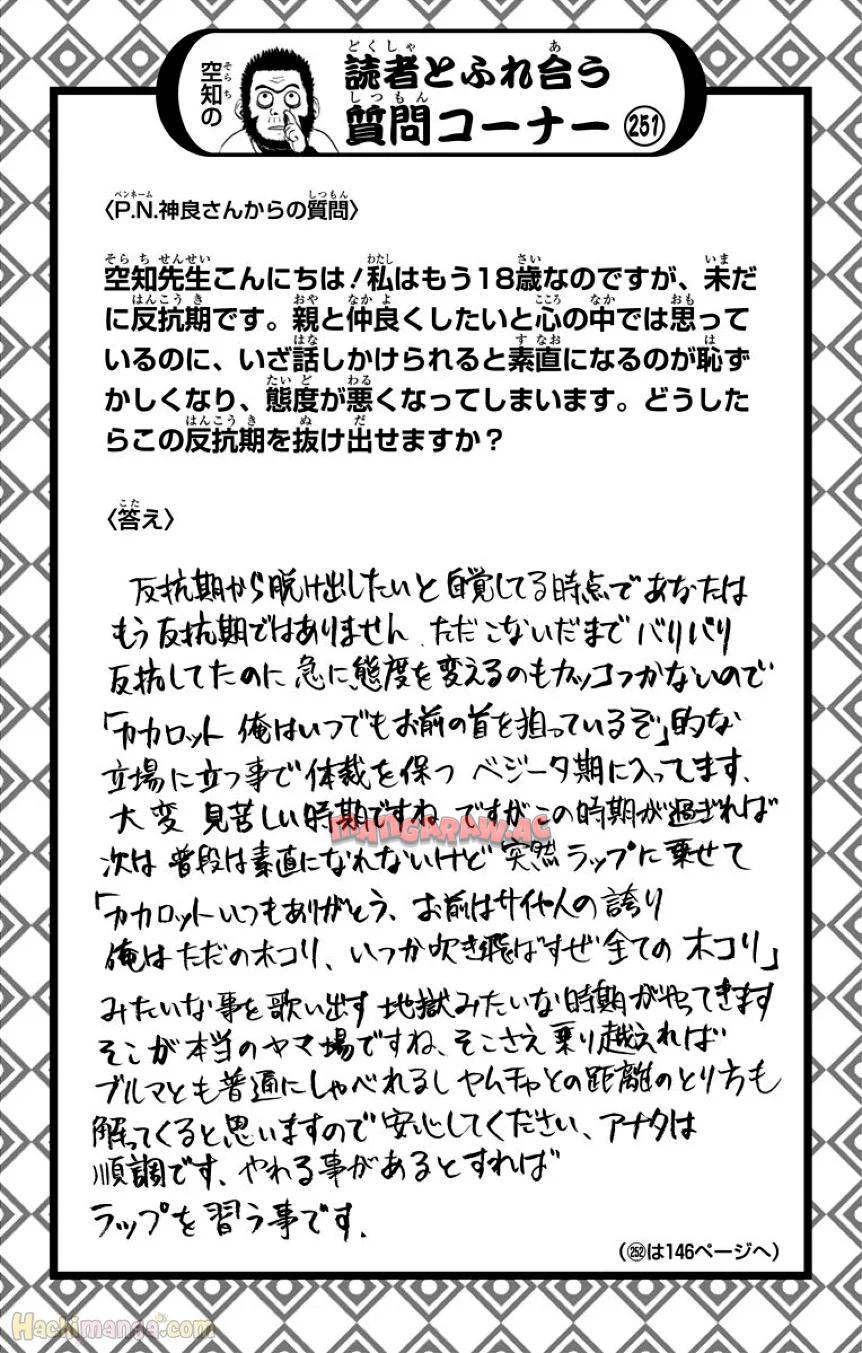 空知の
読者とふれ合う
質問コーナー 251
〈P.N.神良さんからの質問〉
空知先生こんにちは!私はもう18歳なのですが、未だ
に反抗期です。親と仲良くしたいと心の中では思って
いるのに、いざ話しかけられると素直になるのが恥ず
かしくなり、態度が悪くなってしまいます。どうした
らこの反抗期を抜け出せますか?
〈答え〉
反抗期から脱け出したいと自覚してる時点であなたは
もう反抗期ではありません ただこないだまでバリバリ
反抗してたのに急に態度を変えるのもカッコつかないので
「カカロット 俺はいつでもお前の首を狙っているぞ」的な
立場に立つ事で体裁を保つ ベジータ期に入ってます、
大変 見苦しい時期ですね ですがこの時期が過ぎれば
次は普段は素直になれないけど 突然ラップに乗せて
「カカロットいつもありがとう、お前はサイヤ人の誇り
俺はただのホコリ、いつか吹き飛ばすぜ全てのホコリ」
みたいな事を歌い出す 地獄みたいな時期がやってきます
そこが本当のヤマ場ですね、そこさえ乗り越えれば
ブルマとも普通にしゃべれるし ヤムチャとの距離のとり方も
解ってくると思いますので安心してください、アナタは
順調です、やれる事があるとすれば
ラップを習う事です.
(252は146ページへ)
MANGARAW.AC
Hachimanga.com